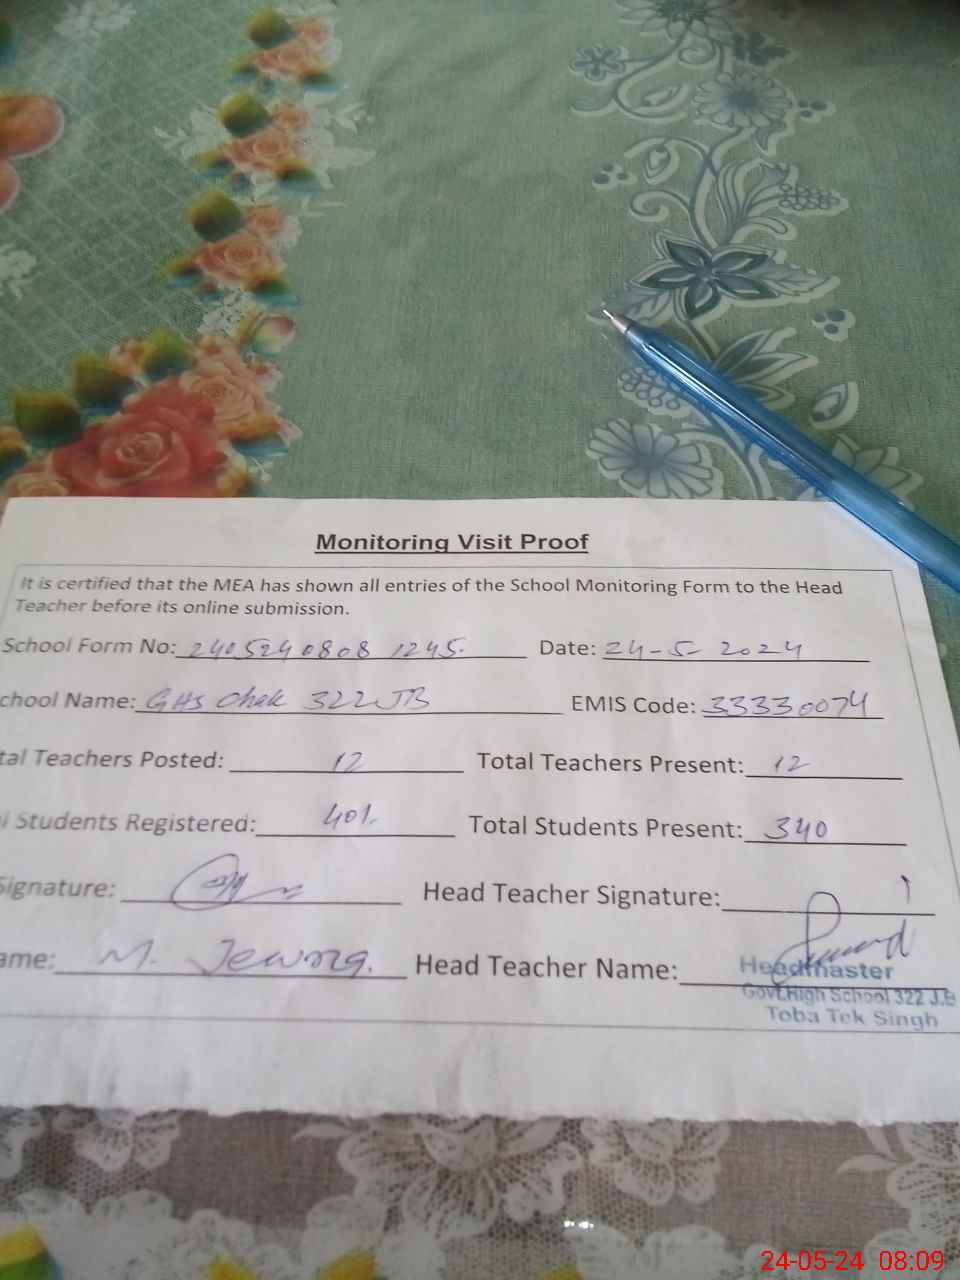 Monitoring Visit Proof
It is certified that the MEA has shown all entries of the School Monitoring Form to the Head
Teacher before its online submission.
School Form No: 2405240808 1245. Date: 24-5-2024
chool Name: GHS Chak 322 JB EMIS Code: 33330074
tal Teachers Posted: 12 Total Teachers Present: 12
l Students Registered: 401. Total Students Present: 340
Signature: Head Teacher Signature:
ame: M. Head Teacher Name:
Headmaster
Govt.High School 322 J.B
Toba Tek Singh
24-05-24 08:09